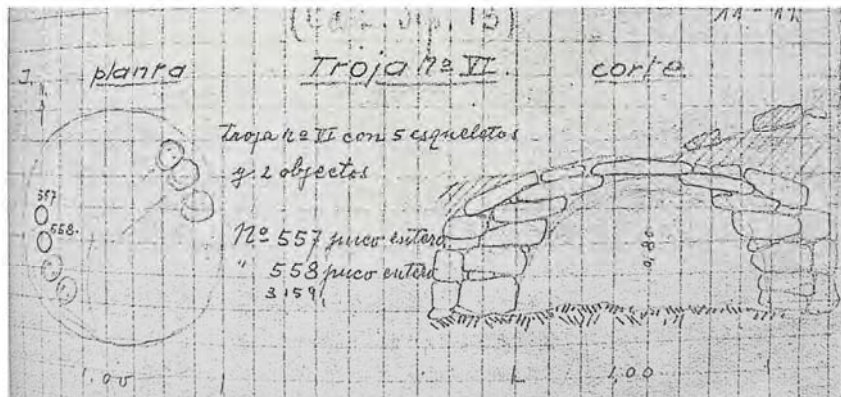 (Cat. Sip. 15)
11-17
planta
Troja nº VI.
corte
Troja nº VI con 5 esqueletos
y 2 objectos
557
558.
Nº 557 puco entero
" 558 puco entero
3159,
0,80
1,00
1,00